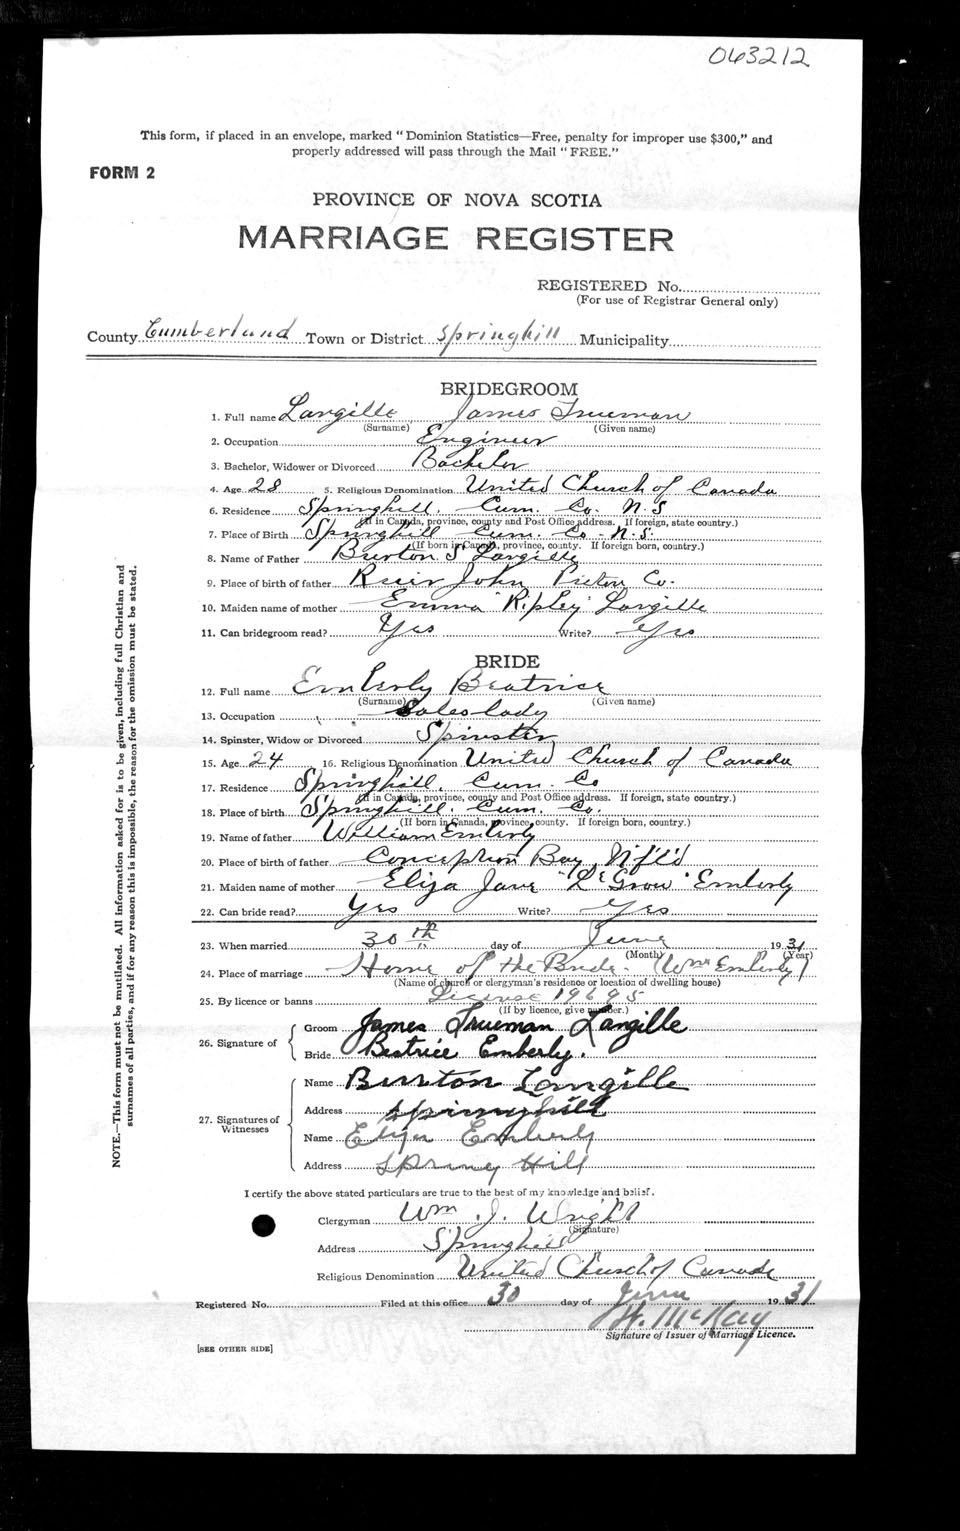 043212
This form, if placed in an envelope, marked "Dominion Statistics—Free, penalty for improper use $300," and
properly addressed will pass through the Mail "FREE."
FORM 2
PROVINCE OF NOVA SCOTIA
MARRIAGE REGISTER
REGISTERED No.
(For use of Registrar General only)
County Cumberland Town or District Springhill Municipality
BRIDEGROOM
1. Full name Langille James Trueman
(Surname) (Given name)
2. Occupation Engineer
3. Bachelor, Widower or Divorced Bachelor
4. Age 28 5. Religious Denomination United Church of Canada
6. Residence Springhill. Cum. Co. N.S
(If in Canada, province, county and Post Office address. If foreign, state country.)
7. Place of Birth Springhill Cum. Co. N.S.
(If born in Canada, province, county. If foreign born, country.)
8. Name of Father Burton S Langille
9. Place of birth of father River John Pictou Co.
10. Maiden name of mother Emma "Ripley" Langille
11. Can bridegroom read? Yes Write? Yes
BRIDE
12. Full name Emberly Beatrice
(Surname) (Given name)
13. Occupation Saleslady
14. Spinster, Widow or Divorced Spinster
15. Age 24 16. Religious Denomination United Church of Canada
17. Residence Springhill. Cum. Co
(If in Canada, province, county and Post Office address. If foreign, state country.)
18. Place of birth Springhill. Cum. Co.
(If born in Canada, province, county. If foreign born, country.)
19. Name of father William Emberly
20. Place of birth of father Conception Bay Nf'l'd
21. Maiden name of mother Eliza Jane "LeGrow" Emberly
22. Can bride read? Yes Write? Yes
23. When married 30th day of June 1931
(Month) (Year)
24. Place of marriage Home of the Bride. (Wm Emberly)
(Name of church or clergyman's residence or location of dwelling house)
25. By licence or banns License 19695
(If by licence, give number.)
26. Signature of
Groom James Trueman Langille
Bride Beatrice Emberly.
27. Signatures of Witnesses
Name Burton Langille
Address Springhill
Name Eliza Emberly
Address Spring Hill
I certify the above stated particulars are true to the best of my knowledge and belief.
Clergyman Wm. J. Wright
(Signature)
Address Springhill
Religious Denomination United Church of Canada
Registered No. Filed at this office 30 day of June 1931
H. McKay
Signature of Issuer of Marriage Licence.
[SEE OTHER SIDE]
NOTE.—This form must not be mutilated. All information asked for is to be given, including full Christian and
surnames of all parties, and if for any reason this is impossible, the reason for the omission must be stated.